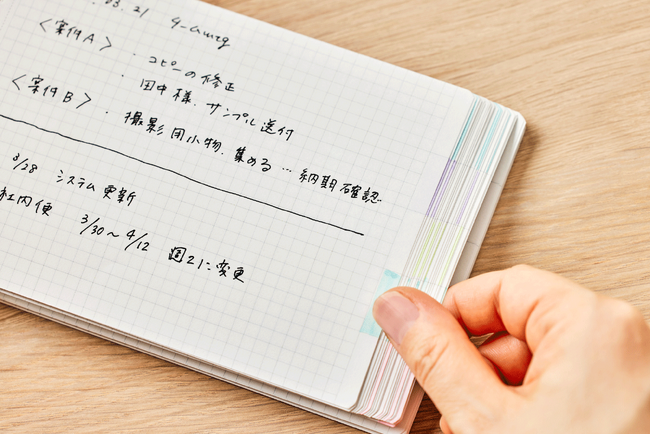 03.21
〈案件A〉 ・コピーの修正
・田中様.サンプル送付
〈案件B〉 ・撮影用小物.集める…納期確認
3/28 システム更新
社内便 3/30〜4/12 週2に変更